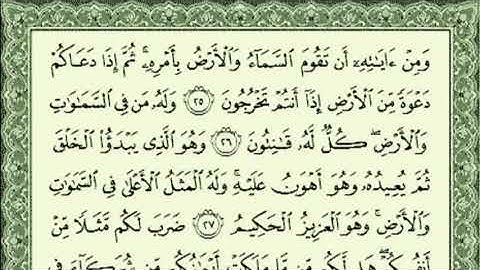 وَمِنْ ءَايَٰتِهِۦٓ أَن تَقُومَ ٱلسَّمَآءُ وَٱلْأَرْضُ بِأَمْرِهِۦ ۚ ثُمَّ إِذَا دَعَاكُمْ
دَعْوَةً مِّنَ ٱلْأَرْضِ إِذَآ أَنتُمْ تَخْرُجُونَ ٢٥ وَلَهُۥ مَن فِى ٱلسَّمَٰوَٰتِ
وَٱلْأَرْضِ ۖ كُلٌّ لَّهُۥ قَٰنِتُونَ ٢٦ وَهُوَ ٱلَّذِى يَبْدَؤُا۟ ٱلْخَلْقَ
ثُمَّ يُعِيدُهُۥ وَهُوَ أَهْوَنُ عَلَيْهِ ۚ وَلَهُ ٱلْمَثَلُ ٱلْأَعْلَىٰ فِى ٱلسَّمَٰوَٰتِ
وَٱلْأَرْضِ ۚ وَهُوَ ٱلْعَزِيزُ ٱلْحَكِيمُ ٢٧ ضَرَبَ لَكُم مَّثَلًا مِّنْ
أَنفُسِكُمْ ۖ هَل لَّكُم مِّن مَّا مَلَكَتْ أَيْمَٰنُكُم مِّن شُرَكَآءَ فِى